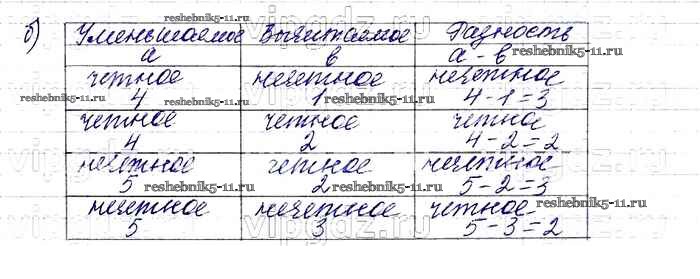 reshebnik5-11.ru
б) Уменьшаемое Вычитаемое Разность
а в а - в
reshebnik5-11.ru
четное нечетное нечетное
reshebnik5-11.ru reshebnik5-11.ru reshebnik5-11.ru
4 1 4-1=3
четное четное четное
4 2 4-2=2
vipgdz.ru
нечетное четное нечетное
5 2 5-2=3
reshebnik5-11.ru reshebnik5-11.ru
нечетное нечетное четное
reshebnik5-11.ru
5 3 5-3=2
vipgdz.ru